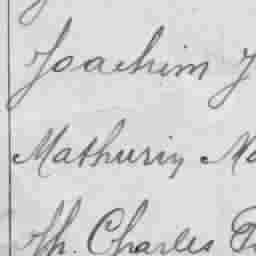 Joachim J
Mathurin Na
Th. Charles